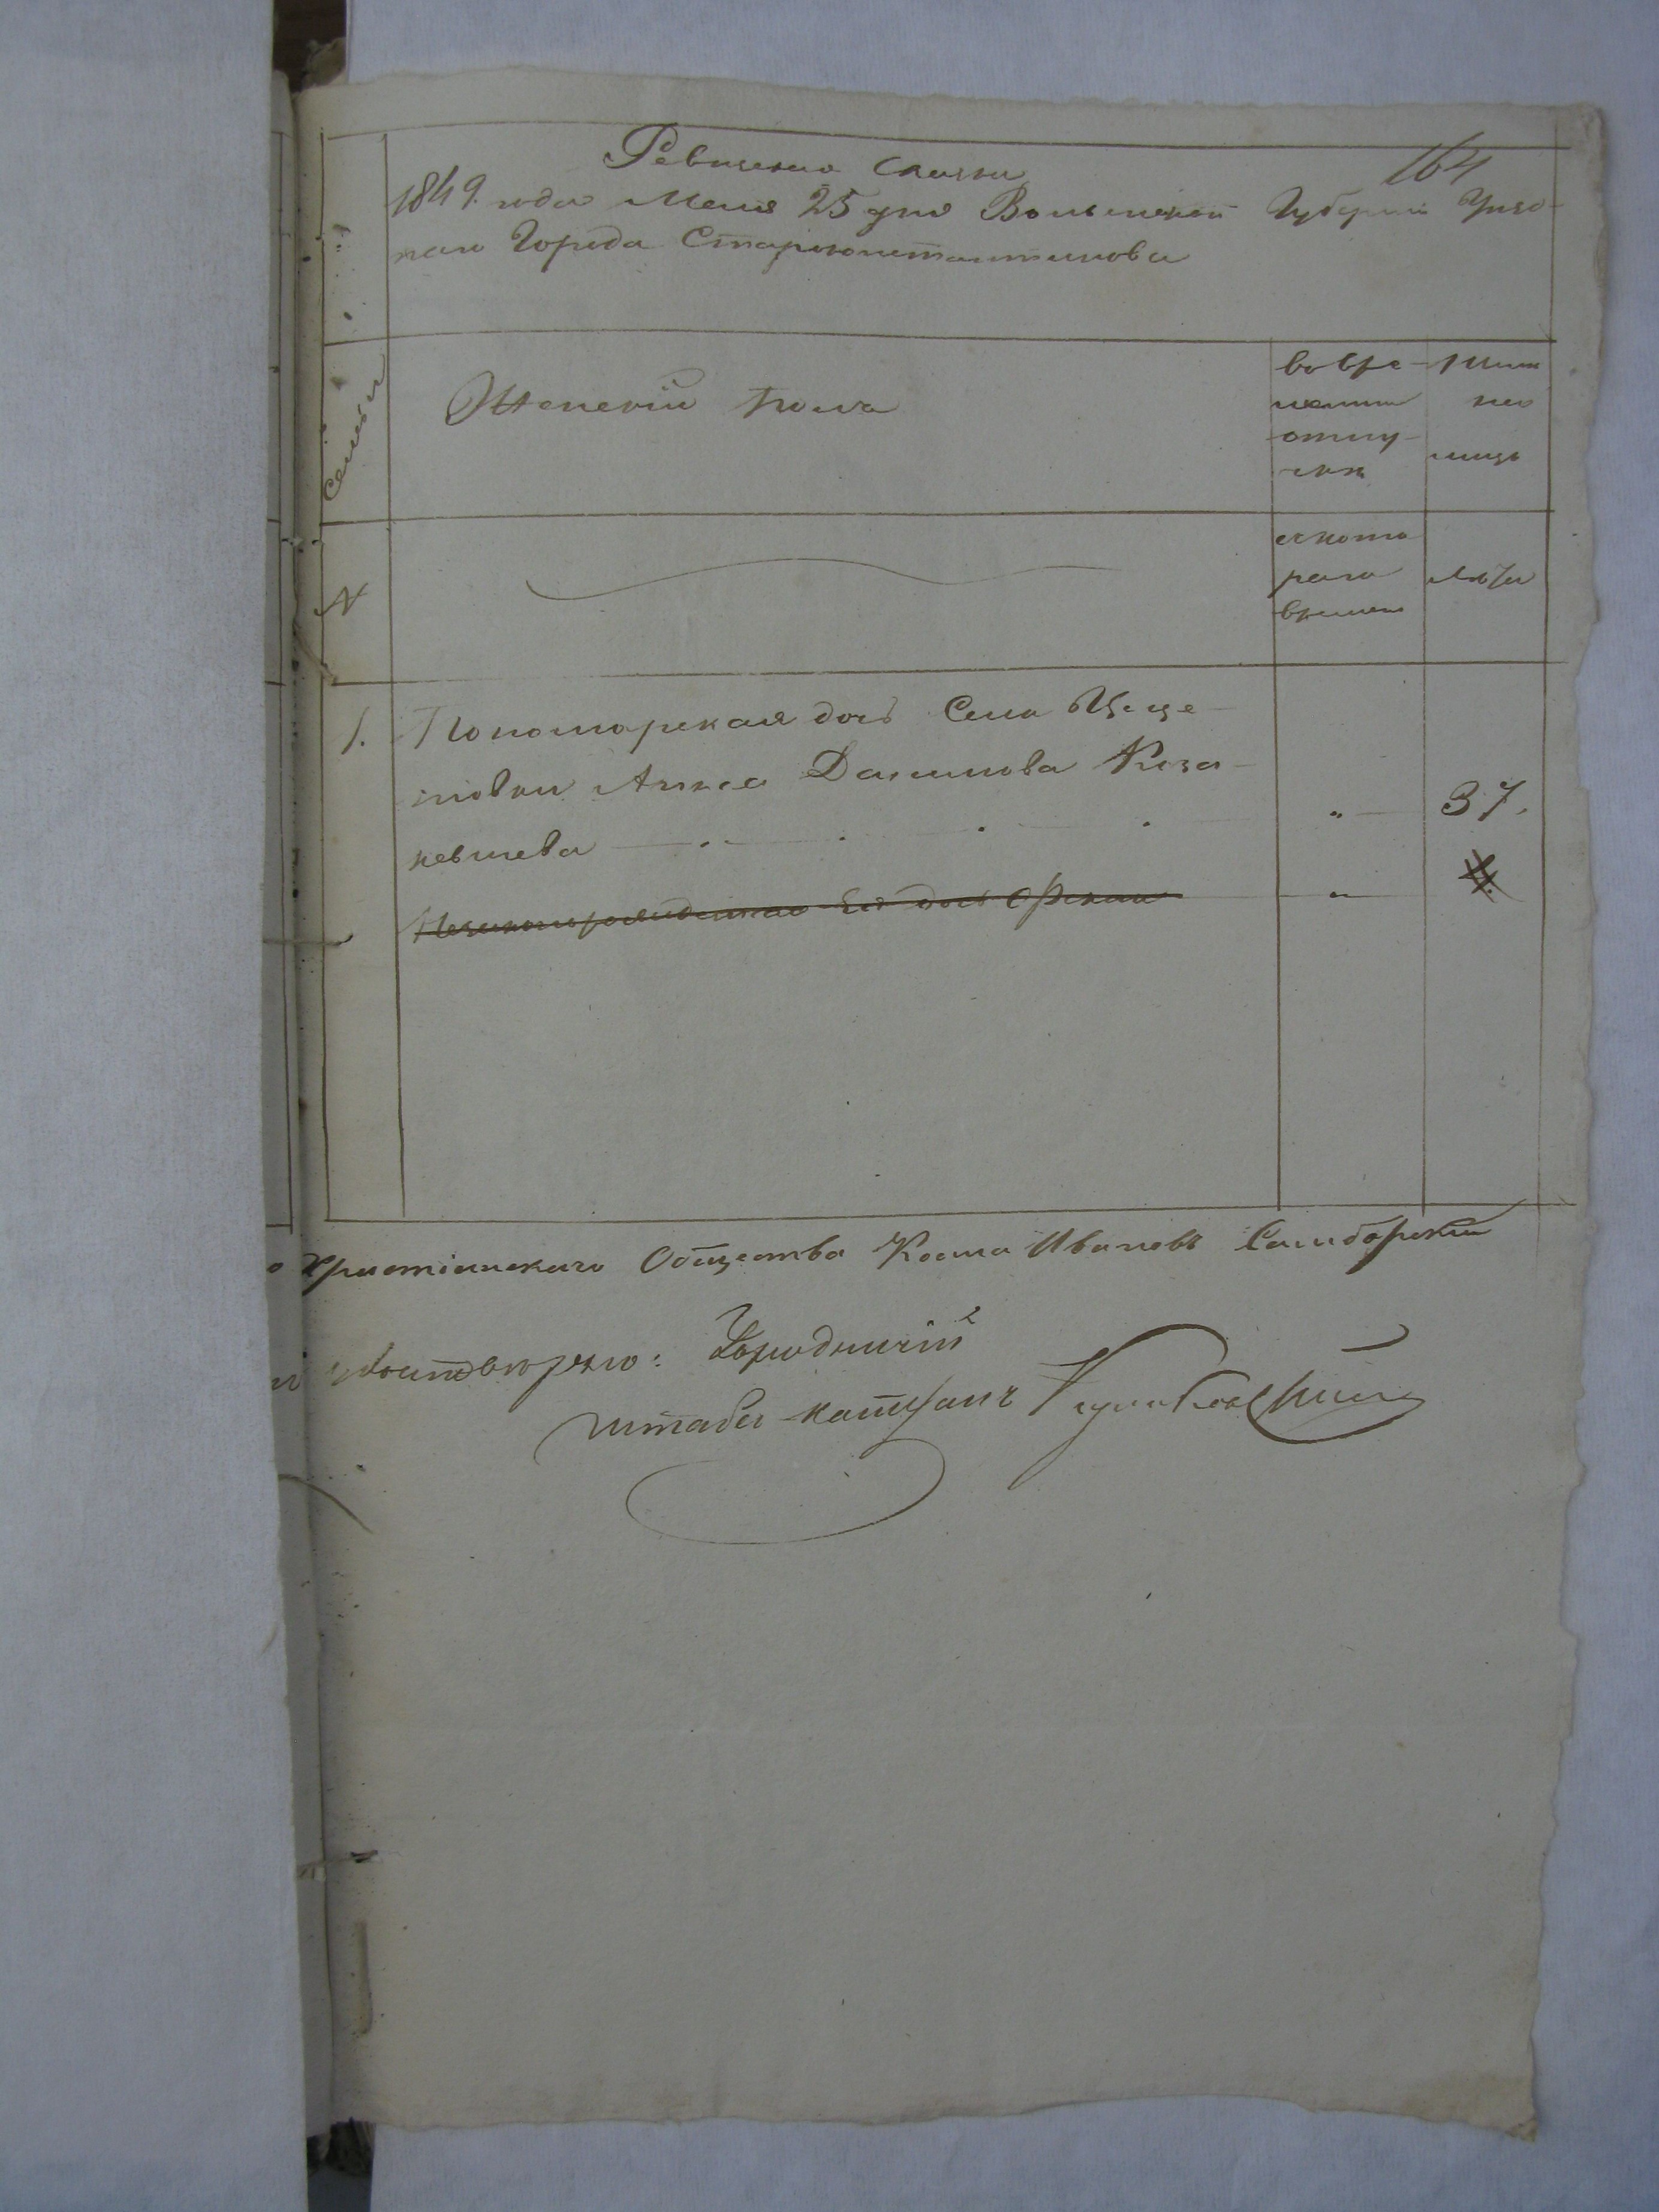 Ревизская сказка
164
1849. года Маия 25 дня Волынской Губернiи Уезд-
наго Города Староконстантинова
Семьи
Женскiй полъ
во вре-
менной
отлу-
чкѣ
Ныне
на
лицо
№
съ кото
раго
времени
лѣта
1.
Пономарская дочь Села
Анна Данилова Коза-
кевичева
" 37.
Незаконорожденная Ея дочь
"
Христiанскаго Общества Козма Ивановъ Самборскiй
Городничiй
штабсъ-капитанъ